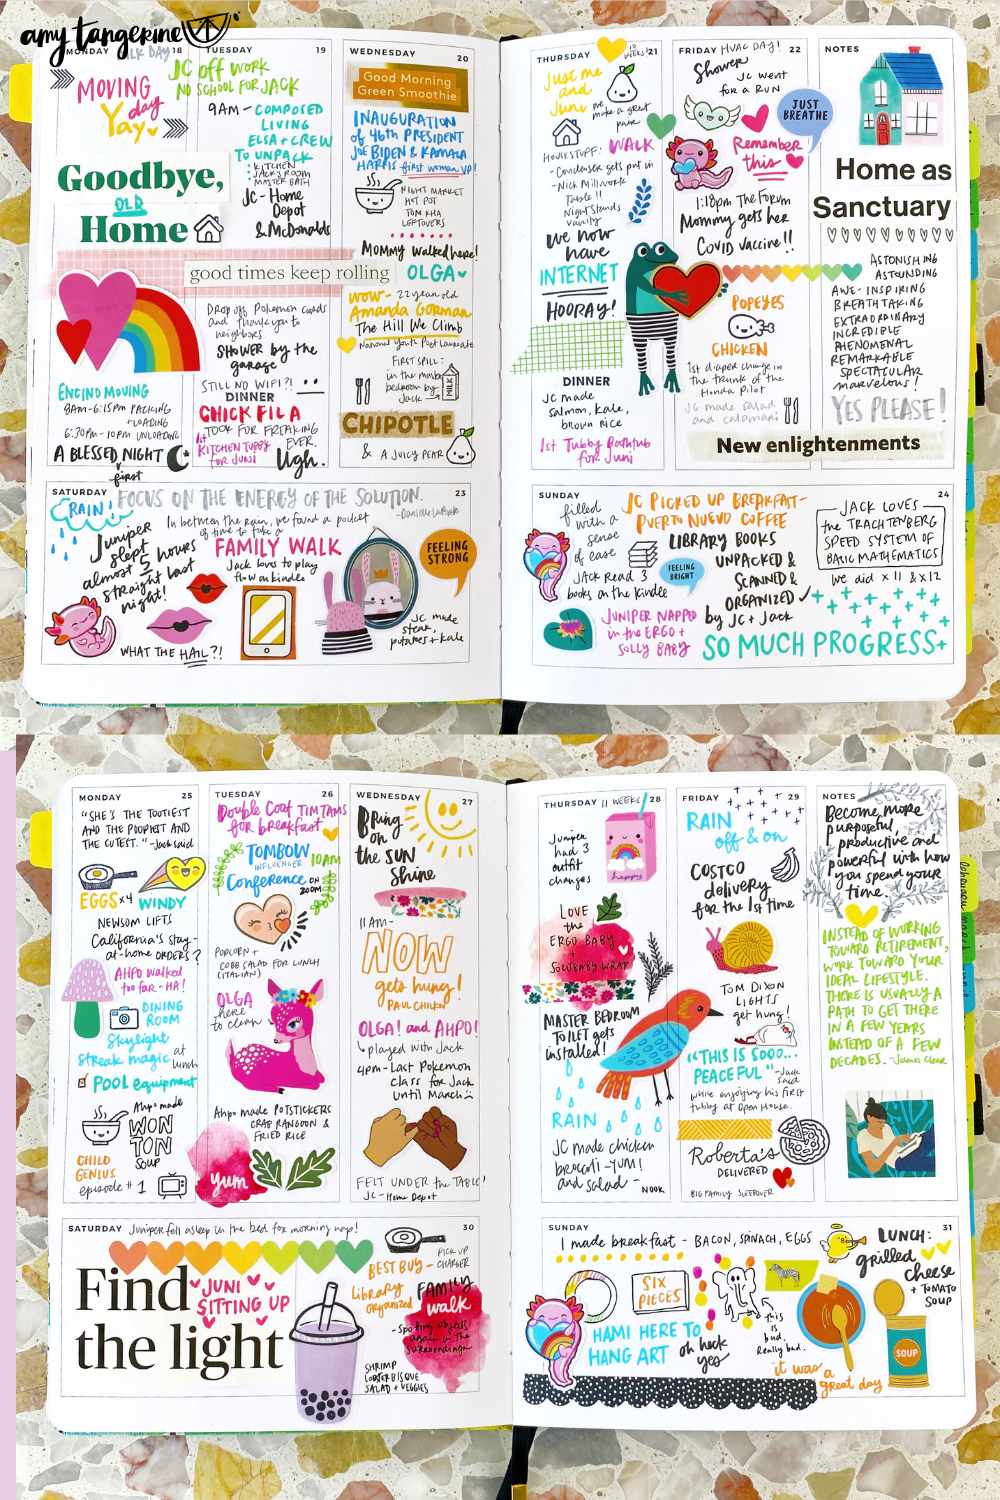 amy tangerine
MONDAY
MLK DAY 18
MOVING
day
Yay
Goodbye,
OLD
Home
ENCINO MOVING
8AM-6:15PM PACKING
+ LOADING
6:30PM-10PM UNLOADING
A BLESSED NIGHT
first
TUESDAY
19
JC off WORK
NO SCHOOL FOR JACK
9AM - COMPOSED
LIVING
ELSA + CREW
TO UNPACK
KITCHEN
JACK'S ROOM
MASTER BATH
JC - Home
Depot
& McDonalds
good times keep rolling
DROP off Pokemon cards
and thank you to
neighbors
SHOWER by the
garage
STILL NO WIFI?!
DINNER
CHICK FIL A
TOOK FOR FREAKING
EVER.
1st
KITCHEN TUBBY
FOR JUNI
Ugh.
WEDNESDAY
20
Good Morning
Green Smoothie
INAUGURATION
of 46th PRESIDENT
JOE BIDEN & KAMALA
HARRIS first woman VP!
NIGHT MARKET
HOT POT
TOM KHA
LEFTOVERS
MOMMY walked here!
OLGA
WOW- 22 year old
Amanda Gorman
The Hill We Climb
National Youth Poet Laureate
FIRST SPILL:
in the
bedroom by
Jack
MILK
CHIPOTLE
& A JUICY PEAR
THURSDAY
10 WEEKS!
21
Just me
and
Juni
We
make a great
pair
HOUSE STUFF:
WALK
- Condenser gets put in
- Nick Millwork
Table!!
Nightstands
Vanity
We now
have
INTERNET
HOORAY!
DINNER
JC made
salmon, kale,
brown rice
1st Tubby Bathtub
for Juni
FRIDAY
HVAC DAY!
22
Shower
JC went
for a RUN
JUST
BREATHE
Remember
this
1:18pm The Forum
Mommy gets her
COVID Vaccine!!
POPEYES
CHICKEN
1st diaper change in
the trunk of the
Honda Pilot
JC made salad
and calamari
New enlightenments
NOTES
Home as
Sanctuary
ASTONISHING
ASTOUNDING
AWE-INSPIRING
BREATHTAKING
EXTRAORDINARY
INCREDIBLE
PHENOMENAL
REMARKABLE
SPECTACULAR
marvelous!
YES PLEASE!
SATURDAY
FOCUS ON THE ENERGY OF THE SOLUTION.
-Danielle LaPorte
23
RAIN!
Juniper
slept
almost 5 hours
straight last
night!
In between the rain, we found a pocket
of time to take a
FAMILY WALK
Jack loves to play
flow on kindle
FEELING
STRONG
WHAT THE HAIL?!
JC made
steak
potatoes + kale
SUNDAY
24
filled
with a
sense
of ease
JC PICKED UP BREAKFAST-
PUERTO NUEVO COFFEE
LIBRARY BOOKS
UNPACKED &
SCANNED &
ORGANIZED
by JC + Jack
FEELING
BRIGHT
JACK READ 3
books on the kindle
JUNIPER NAPPED
in the ERGO +
SOLLY BABY
JACK LOVES
the TRACHTENBERG
SPEED SYSTEM OF
BASIC MATHEMATICS
we did x 11 & x12
SO MUCH PROGRESS+
MONDAY
25
"SHE'S THE TOOTIEST
AND THE POOPIEST AND
THE CUTEST." -Jack said
EGGS x4 WINDY
NEWSOM LIFTS
California's stay-
at-home ORDERS?
AHPO walked
too far - HA!
DINING
ROOM
Skylight
Streak magic at
lunch
POOL equipment
Ahpo made
WON
TON
SOUP
CHILD
GENIUS
episode #1
TUESDAY
26
Double Coat TIMTAMS
for breakfast
TOMBOW
INFLUENCER
10AM
Conference
ON
ZOOM
POPCORN +
COBB SALAD FOR LUNCH
(ITALIAN)
OLGA
here
to clean
Ahpo made POTSTICKERS
CRAB RANGOON &
FRIED RICE
yum
WEDNESDAY
27
Bring
on
the SUN
Shine
11AM-
NOW
gets hung!
PAUL CHIKEN
OLGA! and AHPO!
played with Jack
4PM-Last Pokemon
class for Jack
until March
FELT UNDER the TABLE!
JC - Home Depot
THURSDAY
11 WEEKS
28
Juniper
had 3
outfit
changes
happy
LOVE
the
ERGO BABY
+
SOLLYBABY WRAP
MASTER BEDROOM
TOILET gets
installed!
RAIN
JC made chicken
broccoli - YUM!
and salad -
NOOK
FRIDAY
29
RAIN
off & on
COSTCO
delivery
for the 1st time
TOM DIXON
LIGHTS
get hung!
"THIS IS SOOO...
PEACEFUL"
-Jack
said
while enjoying his first
tubby at Open House.
Roberta's
DELIVERED
BIG FAMILY SLEEPOVER
NOTES
Become more
purposeful,
productive and
powerful with how
you spend your
time.
INSTEAD OF WORKING
TOWARD RETIREMENT,
WORK TOWARD YOUR
IDEAL LIFESTYLE.
THERE IS USUALLY A
PATH TO GET THERE
IN A FEW YEARS
INSTEAD OF A FEW
DECADES. -James Clear
SATURDAY
Juniper fell asleep in the bed for morning nap!
30
Find
the light
JUNI
SITTING UP
BEST BUY -
PICK UP
CHARGER
Library
organized
FAMILY
walk
- Spotting objects
again in the
surroundings
SHRIMP
LOBSTER BISQUE
SALAD + VEGGIES
SUNDAY
31
I made breakfast - BACON, SPINACH, EGGS
SIX
PIECES
HAMI HERE TO
HANG ART
oh heck
yes
this
is
bad.
Really bad.
LUNCH:
grilled
cheese
+ TOMATO
SOUP
SOUP
it was a
great day